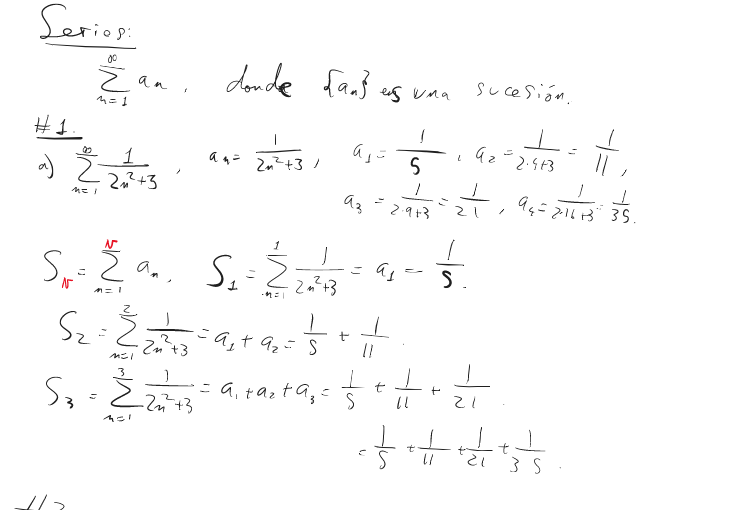 Series:
∞∑n=1 an, donde {an} es una sucesión.
#1.
a) ∞∑n=1 1/(2n²+3), an = 1/(2n²+3), a1 = 1/5, a2 = 1/(2·4+3) = 1/11,
a3 = 1/(2·9+3) = 1/21, a4 = 1/(2·16+3) = 1/35.
SN = N∑n=1 an, S1 = 1∑n=1 1/(2n²+3) = a1 = 1/5.
S2 = 2∑n=1 1/(2n²+3) = a1 + a2 = 1/5 + 1/11.
S3 = 3∑n=1 1/(2n²+3) = a1 + a2 + a3 = 1/5 + 1/11 + 1/21.
= 1/5 + 1/11 + 1/21 + 1/35.